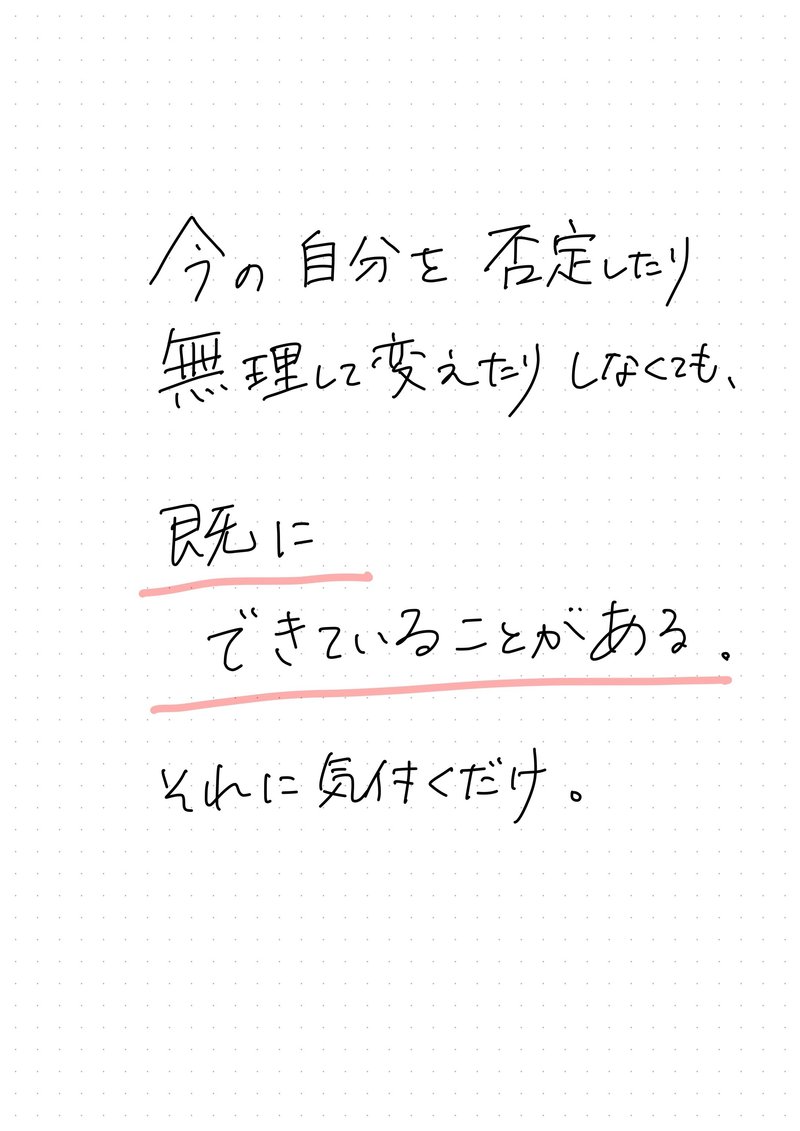 今の自分を否定したり
無理して変えたりしなくても、
既に
できていることがある。
それに気付くだけ。